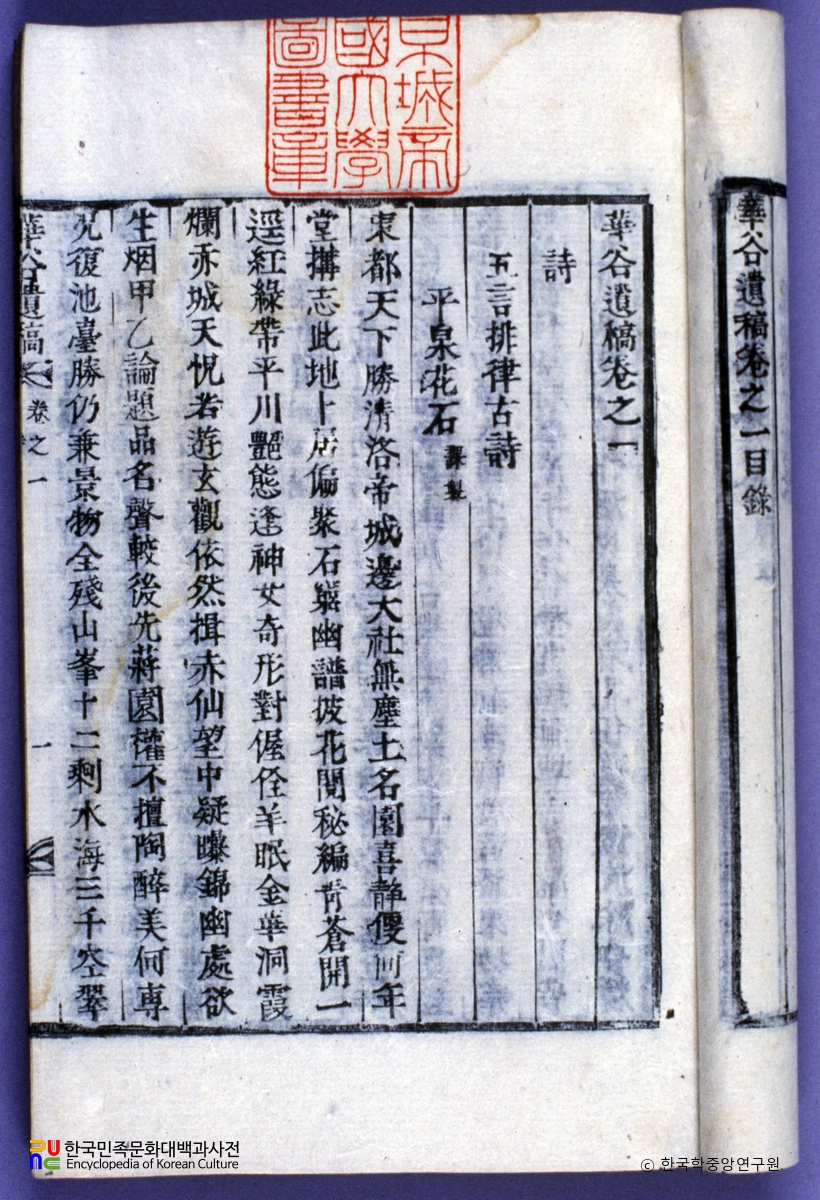 京城帝
國大學
圖書章
華谷遺稿卷之一目錄
華谷遺稿卷之一
詩
五言排律古詩
平泉花石 課製
東都天下勝淸洛帝城邊大社無塵土名園喜靜便何年
堂搆志此地卜居偏聚石幽譜披花閱秘編靑蒼開一
逕紅綠帶平川艷態逢神女奇形對偓佺羊眠金華洞霞
爛赤城天怳若遊玄觀依然揖赤仙望中疑曝錦幽處欲
生烟甲乙論題品名聲較後先蔣園權不擅陶醉美何専
况復池臺勝仍兼景物全殘山峯十二剩水海三千空翠
華谷遺稿 卷之一 一
한국민족문화대백과사전
Encyclopedia of Korean Culture
© 한국학중앙연구원